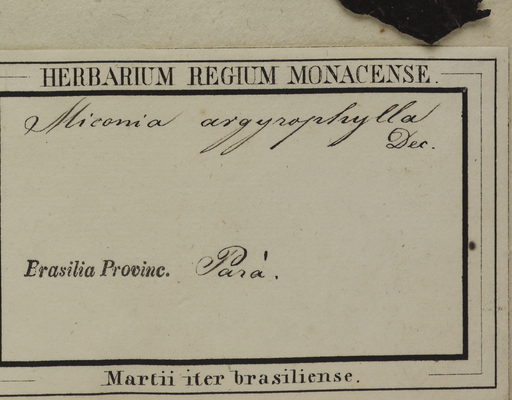 HERBARIUM REGIUM MONACENSE.
Miconia argyrophylla
Dec.
Brasilia Provinc. Parà.
Martii iter brasiliense.